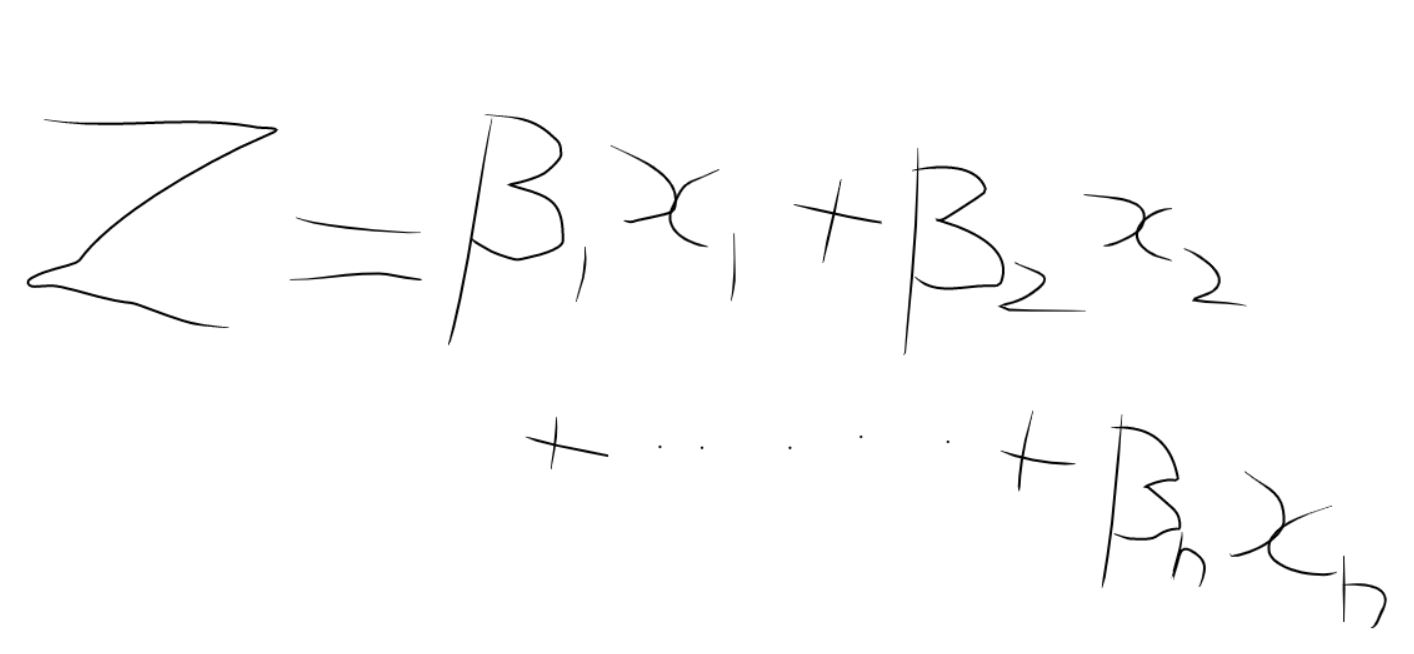 Z = β₁x₁ + β₂x₂
+ ..... + βₙxₙ